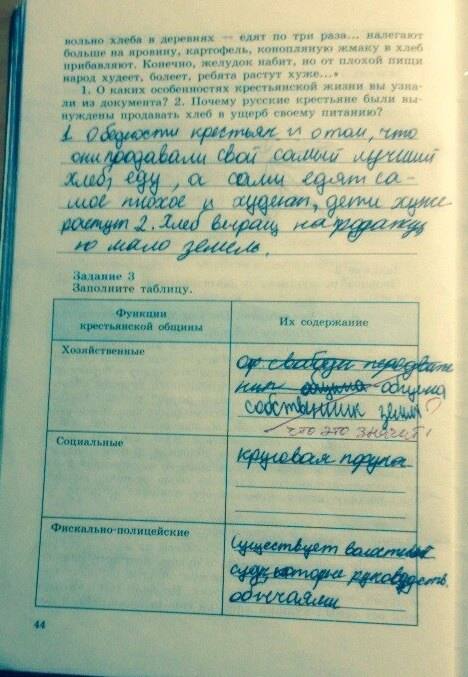 вольно хлеба в деревнях — едят по три раза... налегают
больше на яровину, картофель, конопляную жмаку в хлеб
прибавляют. Конечно, желудок набит, но от плохой пищи
народ худеет, болеет, ребята растут хуже...»
1. О каких особенностях крестьянской жизни вы узна-
ли из документа? 2. Почему русские крестьяне были вы-
нуждены продавать хлеб в ущерб своему питанию?
1. О бедности крестьян и о том, что
они продавали свой самый лучший
хлеб, еду, а сами едят са-
мое плохое и худеют, дети хуже
растут 2. Хлеб выращ на продажу
но мало земель.
Задание 3
Заполните таблицу.
Функции
крестьянской общины
Их содержание
Хозяйственные
свободы
община
собственник земли?
что это значит!
Социальные
круговая порука
Фискально-полицейские
Существует
суд, которые руководств.
обычаями
44